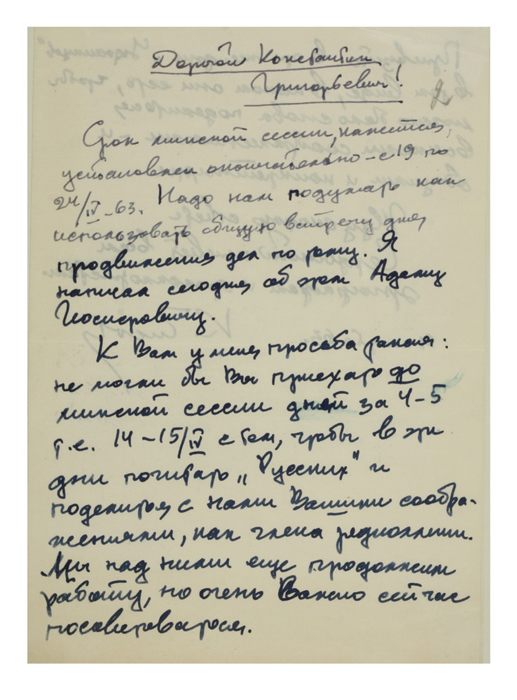 Дорогой Константин
Григорьевич!
2
Срок минской сессии, кажется,
установлен окончательно – с 19 по
24/IV–63. Надо нам подумать как
использовать общую встречу для
продвижения дел по рому. Я
написал сегодня об этом Адаму
Иосифовичу.
К Вам у меня просьба такая:
не могли бы Вы приехать до
минской сессии дней за 4–5
т.е. 14–15/IV с тем, чтобы в эти
дни почитать „Русских" и
поделиться с нами Вашими сообра-
жениями, как члена редколлегии.
Мы над ними еще продолжаем
работу, но очень важно сейчас
посоветоваться.